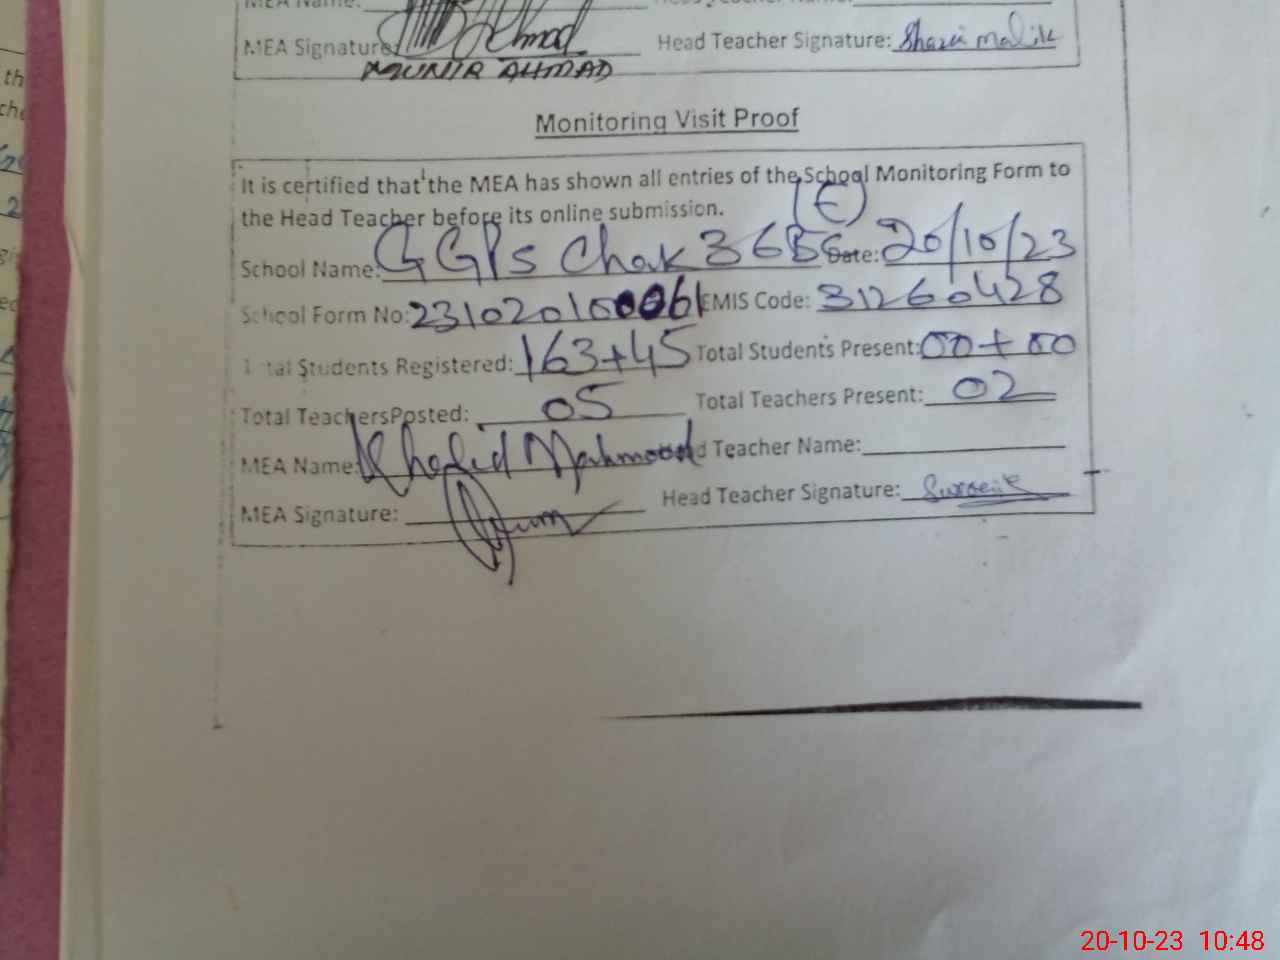 MEA Signature: Ahmad Head Teacher Signature: Shazia Malik
MUNIR AHMAD
Monitoring Visit Proof
It is certified that the MEA has shown all entries of the School Monitoring Form to
the Head Teacher before its online submission. (E)
School Name: GGPS Chak 36BC Date: 20/10/23
School Form No: 23102010006 EMIS Code: 31260428
Total Students Registered: 163+45 Total Students Present: 00+00
Total TeachersPosted: 05 Total Teachers Present: 02
MEA Name: Khalid Mahmood Teacher Name:
MEA Signature: Head Teacher Signature:
20-10-23 10:48